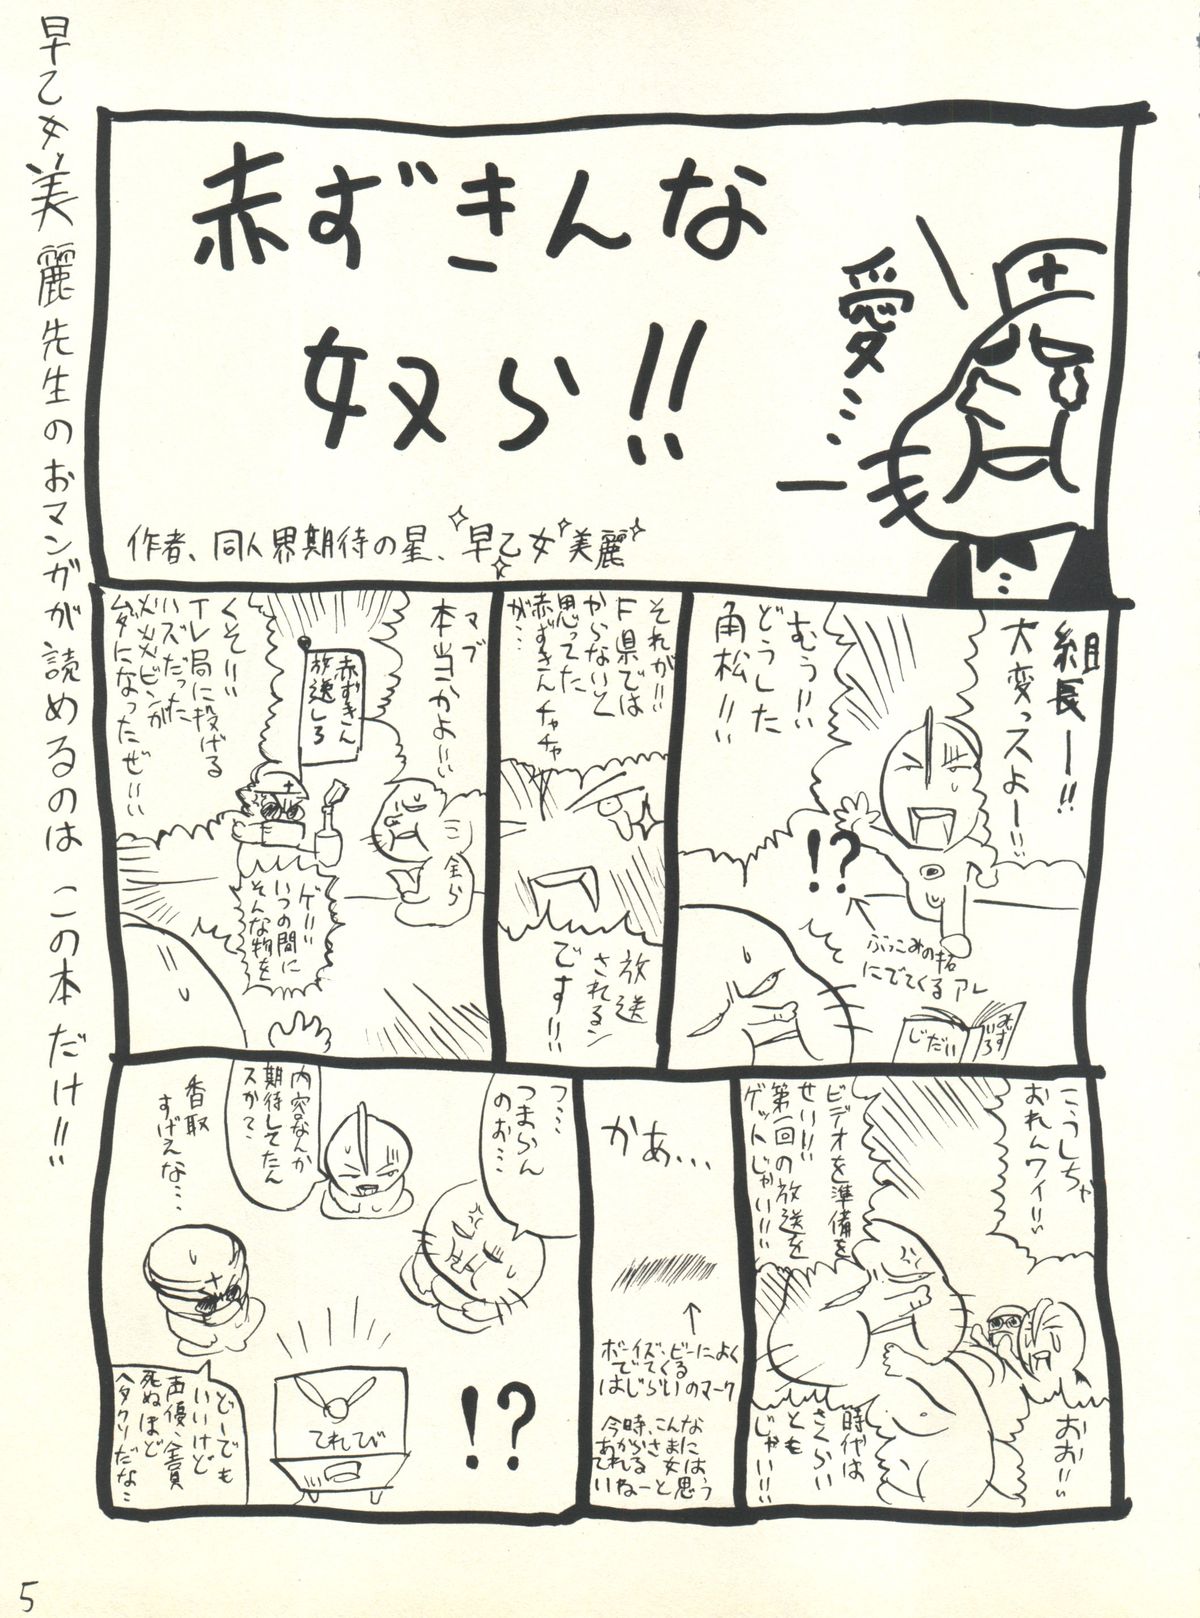 早乙女美麗先生のおマンガが読めるのはこの本だけ!!
赤ずきんな
奴ら!!
愛…
作者、同人界期待の星、早乙女美麗
組長ー!!
大変っスよー!!
むぅ!!
どうした
角松!!
!?
ぶっこみの拓
にでてくるアレ
むずいろ
じだい
それが!!
F県では
やらないと
思ってた
赤ずきんチャチャ
が…
放送
されるン
です!!
マブ
本当かよ!!
赤ずきん
放送しろ
くそ!!
TV局に投げる
ハズだった
ビンが
ダになったぜ!!
ゲ!!
いつの間に
そんな物を
金る
こうしちゃ
おれんワイ!!
ビデオを準備を
せい!!
第一回の放送を
ゲットじゃい!!
おお!!
時代は
さくらい
とも
じゃい!!
かあ…
ボーイズビーによく
でてくる
はじらいのマーク
今時、こんな
あからさまに
てれる女は
いねーと思う
フ…
つまらん
のお…
内容なんか
期待してたん
スか?
香取
すげえな…
!?
てれび
どーでも
いいけど
声優、全員
死ぬほど
ヘタクソだな…
5